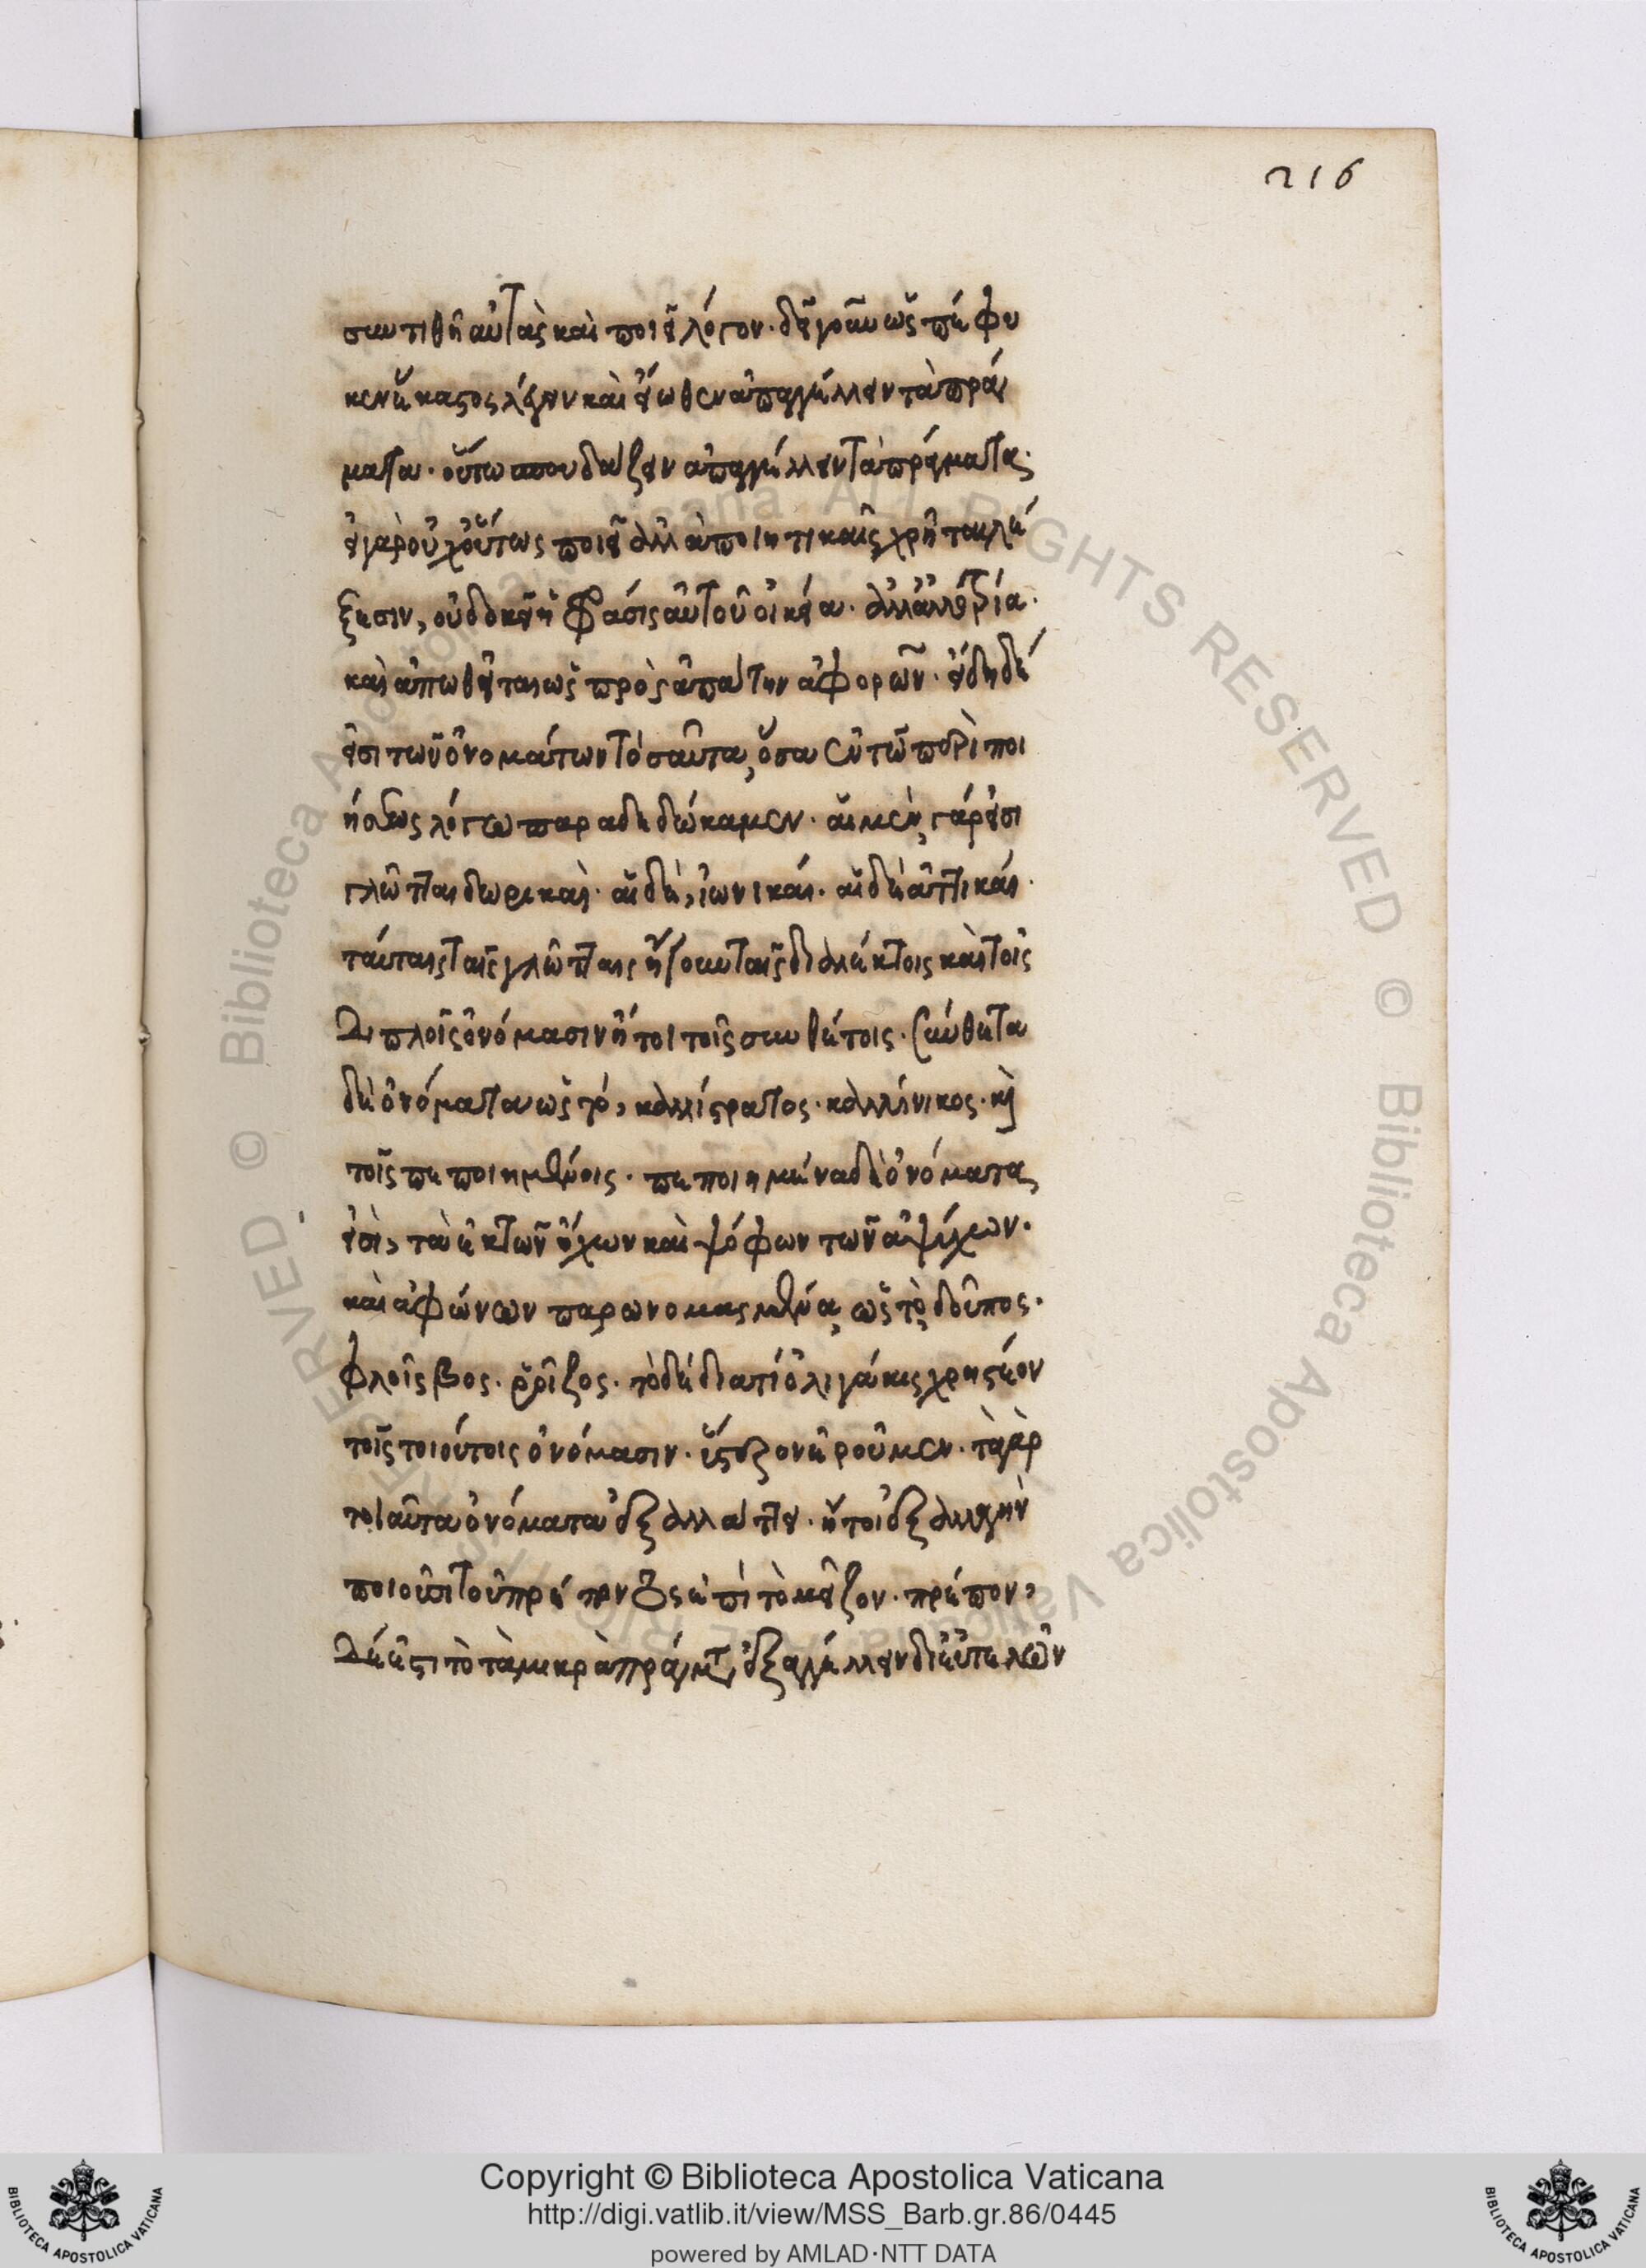 216
συντιθῆ αὐτὰς καὶ ποιεῖ λόγον· δεῖ γοῦν ὡς πέφυ
κεν ἕκαστος λέγειν καὶ εἴωθεν ἀπαγγέλλειν τὰ πράγ
ματα· οὕτω σπουδάζειν ἀπαγγέλλειν τὰ πράγματα·
εἰ γὰρ οὐχ οὕτως ποιεῖ ἀλλὰ ποιητικαῖς χρῆται λέ
ξεσιν, οὐ δοκεῖ ἡ φράσις αὐτοῦ οἰκεία· ἀλλ' ἀλλοτρία·
καὶ ἀπωθεῖται ὡς πρὸς ἀπάτην ἀφορῶν· εἴδη δέ
εἰσι τῶν ὀνομάτων τοσαῦτα, ὅσα ἐν τῷ περὶ ποι
ήσεως λόγω παραδεδώκαμεν· αἱ μὲν γάρ εἰσι
γλῶτται δωρικαὶ· αἱ δὲ, ἰωνικαί· αἱ δὲ ἀττικαί·
ταύταις ταῖς γλώτταις ἤγουν ταῖς διαλέκτοις καὶ τοῖς
διπλοῖς ὀνόμασιν ἤτοι τοῖς συνθέτοις· σύνθετα
δὲ ὀνόματα ὡς τό, καλλίστρατος· καλλίνικος· κὶ
τοῖς πεποιημένοις· πεποιημένα δὲ ὀνόματα,
εἰσὶ, τὰ ἐκ τῶν ἤχων καὶ ψόφων τῶν ἀψύχων·
καὶ ἀφώνων παρωνομασμένα, ὡς τὸ δοῦπος·
φλοῖσβος· ῥοῖζος· τὸ δὲ διατί ὀλιγάκις χρηστέον
τοῖς τοιούτοις ὀνόμασιν· ὕστερον ἐροῦμεν· τὰ γὰρ
τοιαῦτα ὀνόματα ἐξαλλάττει· ἤτοι ἐξαλλαγὴν
ποιοῦσι τοῦ πρέποντος ἐπὶ τὸ μεῖζον· πρέπον,
δέ ἐστι τὸ τὰ μικρὰ πράγματα, ἐξαγγέλλειν δι' εὐτελῶν
Copyright © Biblioteca Apostolica Vaticana
http://digi.vatlib.it/view/MSS_Barb.gr.86/0445
powered by AMLAD·NTT DATA